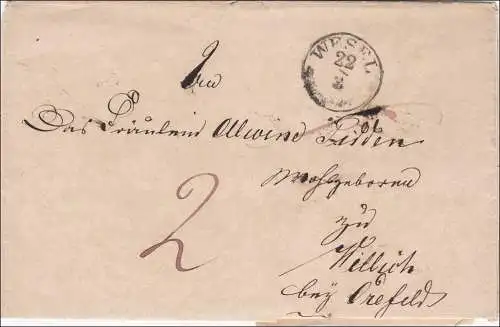 WESEL
22
2
An
Das Fräulein Allwine Leiden
Wohlgeboren
zu
Willich
bey Crefeld
2